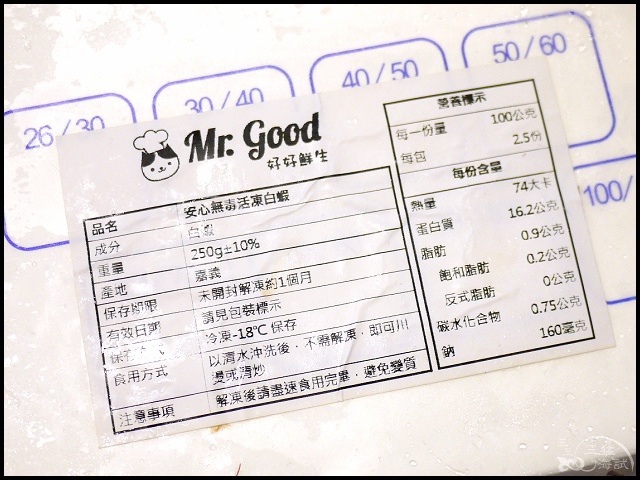 26/30
30/40
40/50
50/60
100/
Mr. Good
好好鮮生
品名 安心無毒活凍白蝦
成分 白蝦
重量 250g±10%
產地 嘉義
保存期限 未開封解凍約1個月
有效日期 請見包裝標示
保存方式 冷凍-18℃保存
食用方式 以清水沖洗後，不需解凍，即可川
燙或清炒
注意事項 解凍後請盡速食用完畢，避免變質
營養標示
每一份量 100公克
每包 2.5份
每份含量
熱量 74大卡
蛋白質 16.2公克
脂肪 0.9公克
飽和脂肪 0.2公克
反式脂肪 0公克
碳水化合物 0.75公克
鈉 160毫克